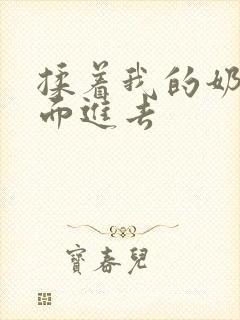 揉着我的奶
而进去
寶春兒